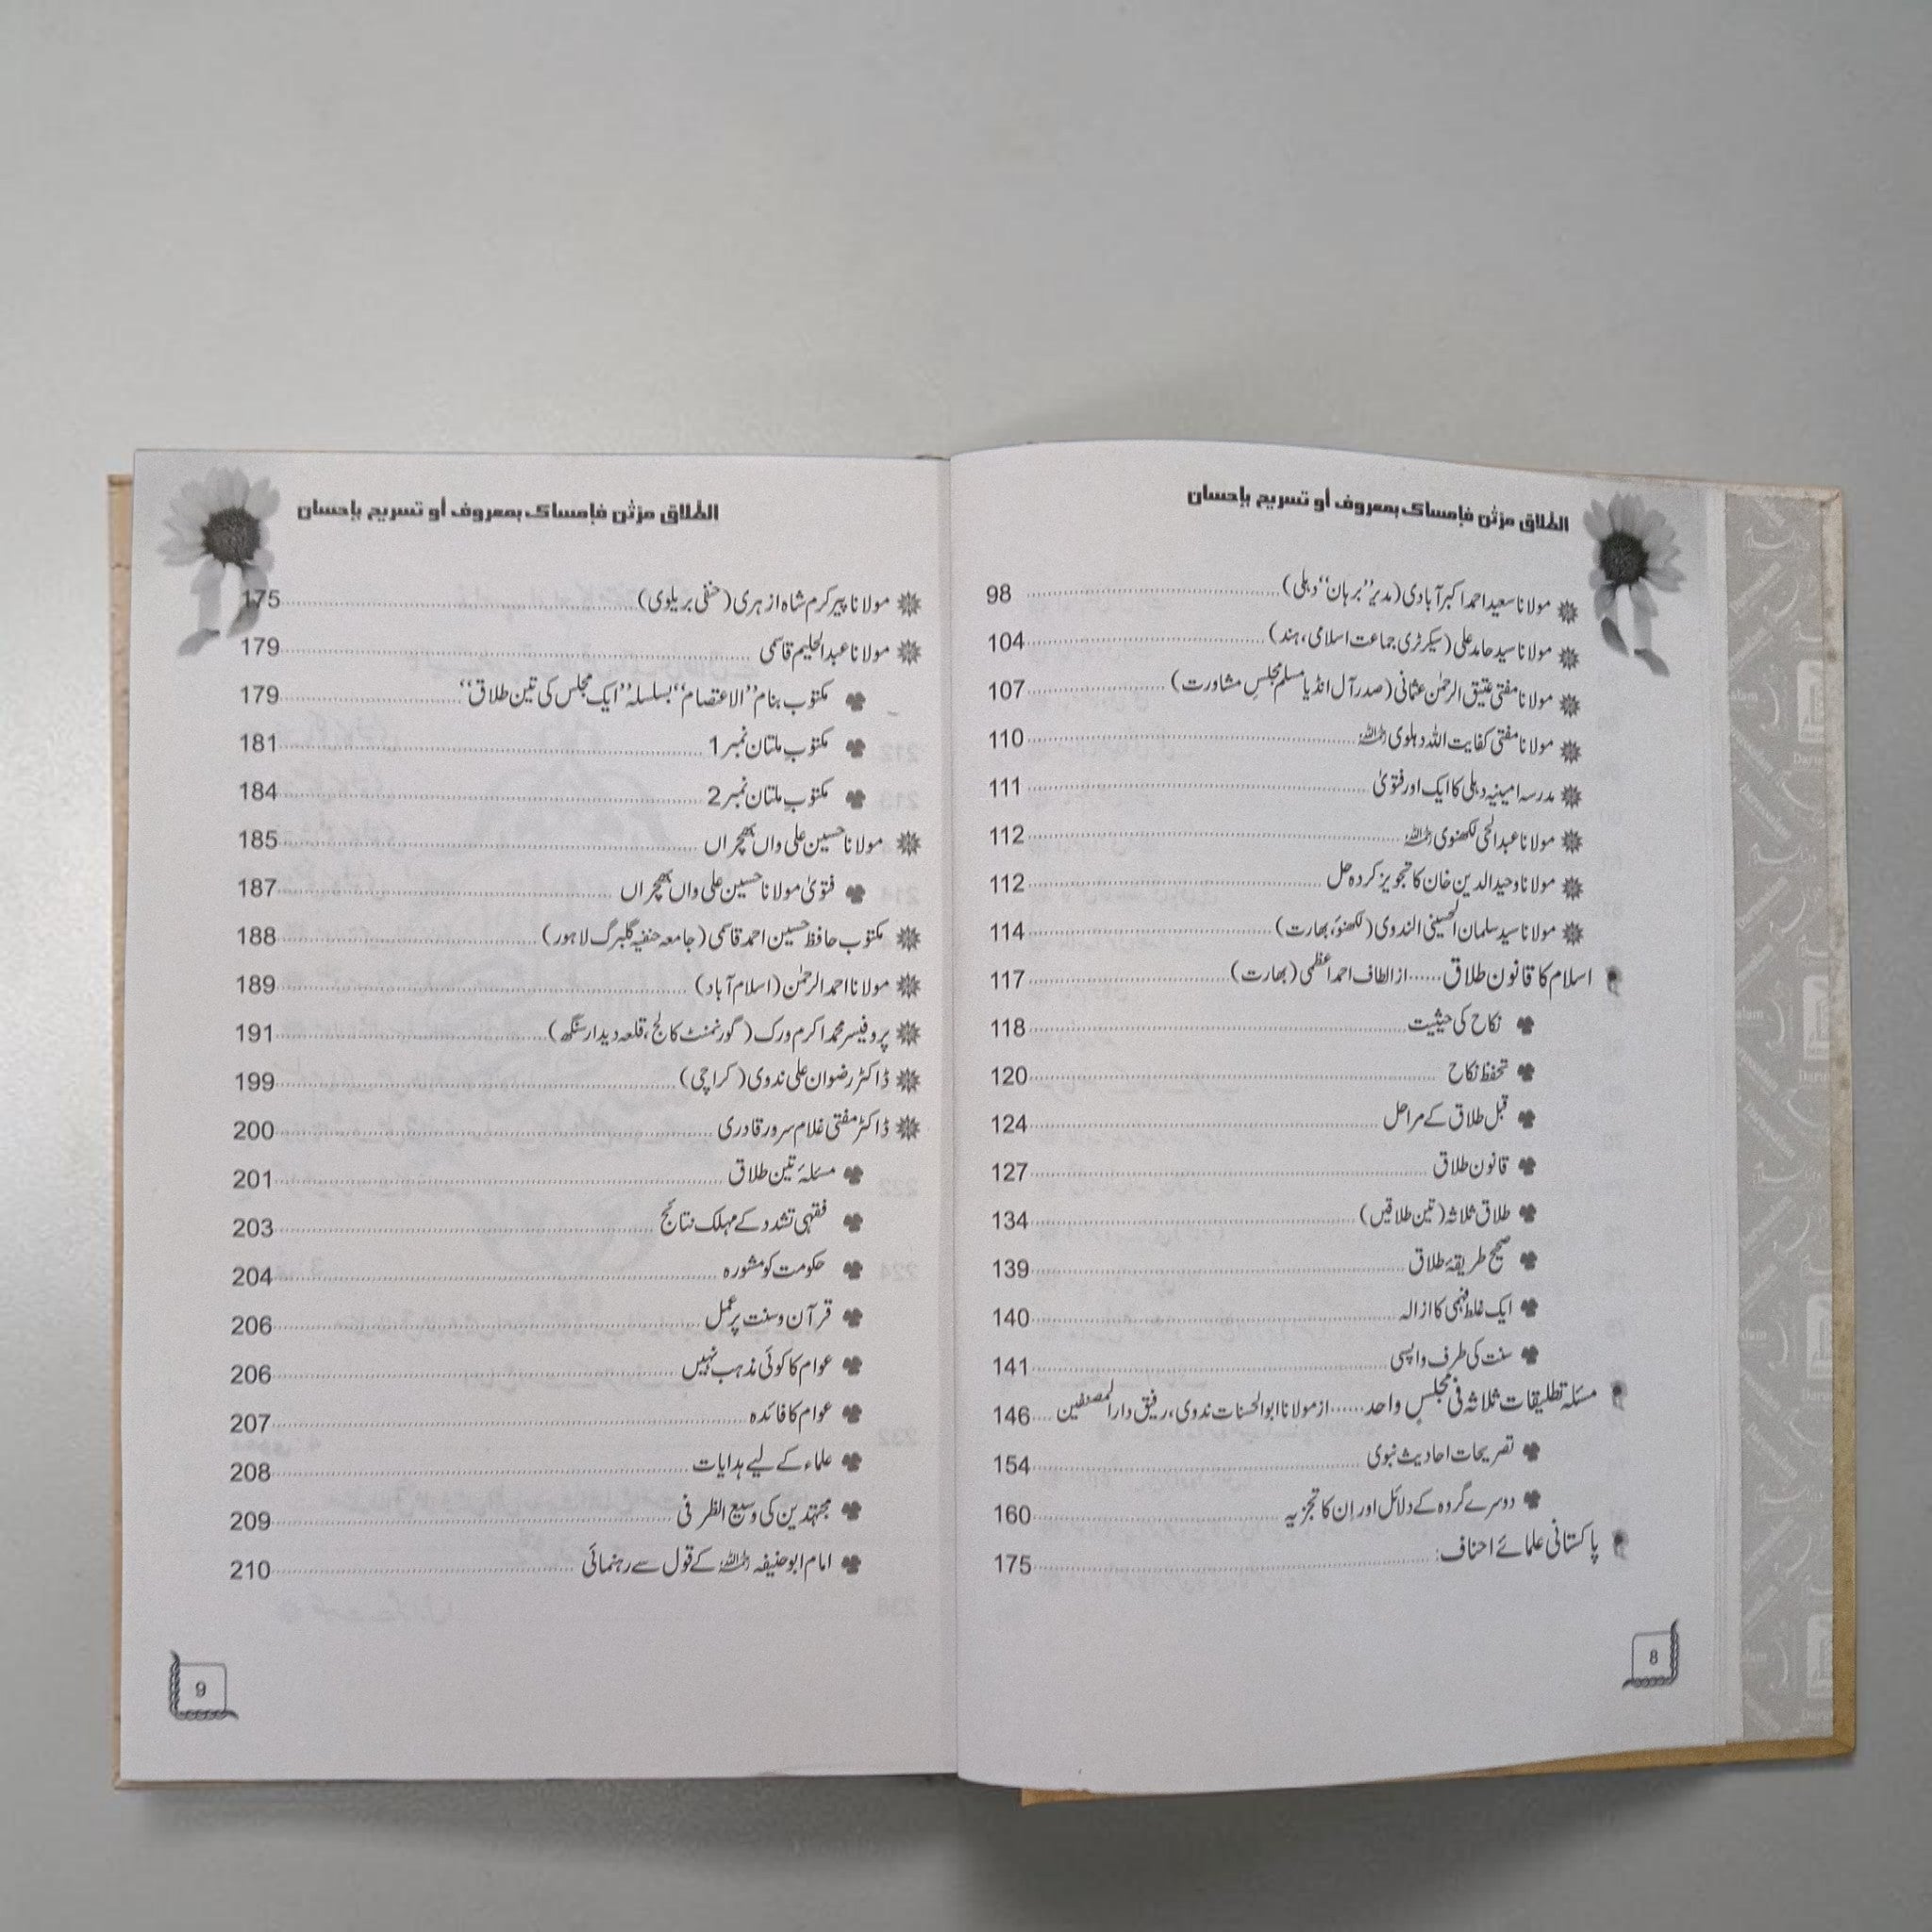 الطلاق مرّتٰن فإمساک بمعروف أو تسریح بإحسان
مولانا سعید احمد اکبر آبادی (مدیر ’’برہان‘‘ دہلی) 98
مولانا سید حامد علی (سیکرٹری جماعت اسلامی، ہند) 104
مولانا مفتی عتیق الرحمٰن عثمانی (صدر آل انڈیا مسلم مجلسِ مشاورت) 107
مولانا مفتی کفایت اللہ دہلوی رحمہ اللہ 110
مدرسہ امینیہ دہلی کا ایک اور فتویٰ 111
مولانا عبدالحی لکھنوی رحمہ اللہ 112
مولانا وحید الدین خان کا تجویز کردہ حل 112
مولانا سید سلمان الحسینی الندوی (لکھنؤ، بھارت) 114
اسلام کا قانون طلاق...... از الطاف احمد اعظمی (بھارت) 117
نکاح کی حیثیت 118
تحفظ نکاح 120
قبل طلاق کے مراحل 124
قانون طلاق 127
طلاق ثلاثہ (تین طلاقیں) 134
صحیح طریقۂ طلاق 139
ایک غلط فہمی کا ازالہ 140
سنت کی طرف واپسی 141
مسئلہ تطلیقات ثلاثہ فی مجلسٍ واحد...... از مولانا ابوالحسنات ندوی، رفیق دار المصنفین 146
تصریحات احادیث نبوی 154
دوسرے گروہ کے دلائل اور اِن کا تجزیہ 160
پاکستانی علمائے احناف: 175
8
الطلاق مرّتٰن فإمساک بمعروف أو تسریح بإحسان
مولانا پیر کرم شاہ ازہری (حنفی بریلوی) 175
مولانا عبدالحلیم قاسمی 179
مکتوب بنام ’’الاعتصام‘‘ بسلسلہ ’’ایک مجلس کی تین طلاق‘‘ 179
مکتوبِ ملتان نمبر 1 181
مکتوبِ ملتان نمبر 2 184
مولانا حسین علی واں بھچراں 185
فتویٰ مولانا حسین علی واں بھچراں 187
مکتوب حافظ حسین احمد قاسمی (جامعہ حنفیہ گلبرگ لاہور) 188
مولانا احمد الرحمٰن (اسلام آباد) 189
پروفیسر محمد اکرم ورک (گورنمنٹ کالج، قلعہ دیدار سنگھ) 191
ڈاکٹر رضوان علی ندوی (کراچی) 199
ڈاکٹر مفتی غلام سرور قادری 200
مسئلۂ تین طلاق 201
فقہی تشدد کے مہلک نتائج 203
حکومت کو مشورہ 204
قرآن و سنت پر عمل 206
عوام کا کوئی مذہب نہیں 206
عوام کا فائدہ 207
علماء کے لیے ہدایات 208
مجتہدین کی وسیع الظرفی 209
امام ابوحنیفہ رحمہ اللہ کے قول سے رہنمائی 210
9